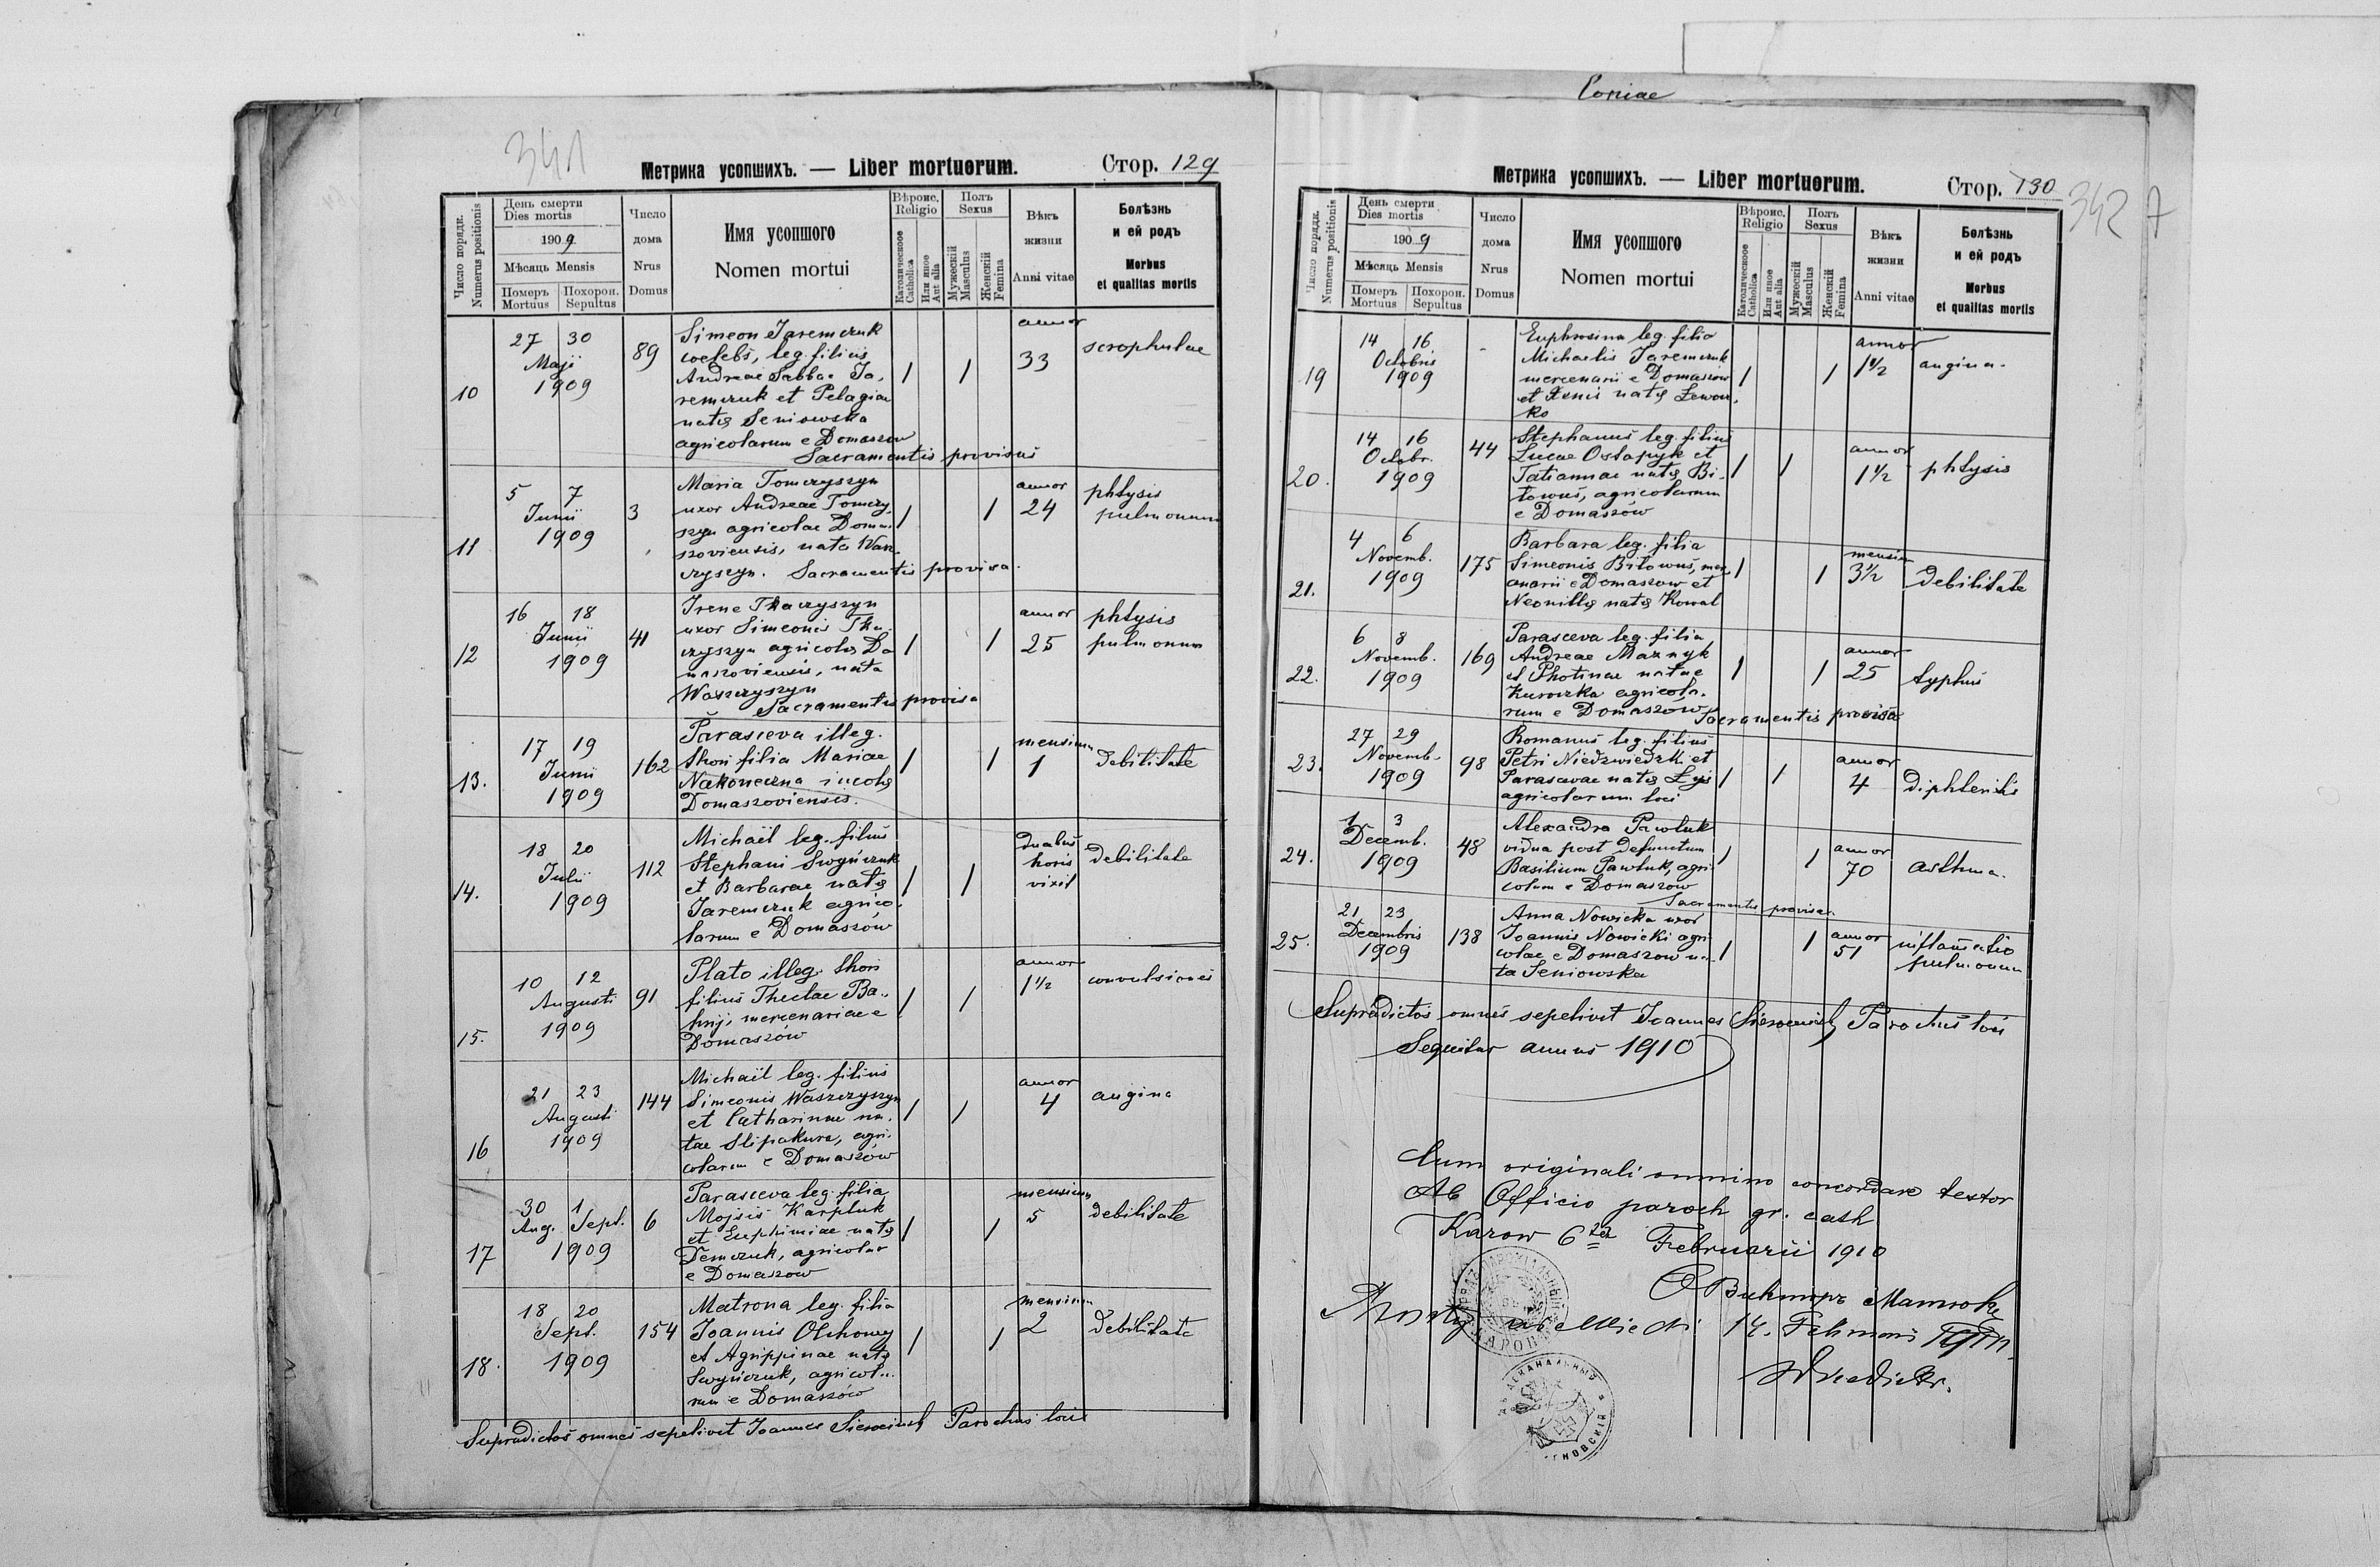 Copiae
341
Метрика усопшихъ. — Liber mortuorum.
Стор. 129
Число порядк.
Numerus positionis
День смерти
Dies mortis
1909
Мѣсяць Mensis
Померъ
Mortuus
Похорон.
Sepultus
Число
дома
Nrus
Domus
Имя усопшого
Nomen mortui
Вѣроис.
Religio
Католическоое
Catholica
Или иное
Aut alia
Полъ
Sexus
Мужескій
Masculus
Женскій
Femina
Вѣкъ
жизни
Anni vitae
Болѣзнь
и ей родъ
Morbus
et qualitas mortis
10
27 30
Maji
1909
89
Simeon Jaremczuk
coelebs, leg. filius
Andreae Sabbae Ja-
remczuk et Pelagiae
natę Seniowska
agricolarum e Domaszow
Sacramentis provisus
1 1
annor
33
scrophulae
11
5 7
Junii
1909
3
Maria Tomczyszyn
uxor Andreae Tomczy-
szyn agricolae Doma-
szoviensis, nata Wasz-
czyszyn. Sacramentis provisa.
1 1
annor
24
phtysis
pulmonum
12
16 18
Junii
1909
41
Irene Tkaczyszyn
uxor Simeonis Tka-
czyszyn agricolę Do
maszoviensis, nata
Waszczyszyn
Sacramentis provisa
1 1
annor
25
phtysis
pulmonum
13.
17 19
Junii
1909
162
Parasceva illeg.
thori filia Mariae
Nakoneczna incolę
Domaszoviensis.
1 1
mensium
1
debilitate
14.
18 20
Julii
1909
112
Michaël leg. filius
Stephani Swyńczuk
et Barbarae natę
Jaremczuk agrico-
larum e Domaszów
1 1
duabus
horis
vixit
debilitate
15.
10 12
Augusti
1909
91
Plato illeg. thori
filius Theclae Ba-
hrij, mercenariae e
Domaszów
1 1
annor
1½
convulsiones
16
21 23
Augusti
1909
144
Michaël leg. filius
Simeonis Waszczyszyn
et Catharinae na-
tae Slipakura, agri-
colarum e Domaszów
1 1
annor
4
angina
17
30 1
Aug. Sept.
1909
6
Parasceva leg. filia
Mojsis Karpluk
et Euphimiae natę
Demczuk, agricolar
e Domaszow
1 1
mensium
5
debilitate
18.
18 20
Sept.
1909
154
Matrona leg. filia
Joannis Olchowy
et Agrippinae natę
Swyńczuk, agricola-
rum e Domaszów
1 1
mensium
2
debilitate
Supradictos omnes sepelivit Joannes Parochus loci
342 7
Метрика усопшихъ. — Liber mortuorum.
Стор. 130
Число порядк.
Numerus positionis
День смерти
Dies mortis
1909
Мѣсяць Mensis
Померъ
Mortuus
Похорон.
Sepultus
Число
дома
Nrus
Domus
Имя усопшого
Nomen mortui
Вѣроис.
Religio
Католическоое
Catholica
Или иное
Aut alia
Полъ
Sexus
Мужескій
Masculus
Женскій
Femina
Вѣкъ
жизни
Anni vitae
Болѣзнь
и ей родъ
Morbus
et qualitas mortis
19
14 16
Octobris
1909
-
Euphrosina leg. filia
Michaelis Jaremczuk
mercenarii e Domaszów
et Xenis natę Lewou-
ko
1 1
annor
1½
angina.
20.
14 16
Octobr.
1909
44
Stephanus leg. filius
Lucae Ostapyk et
Tatiannae natę Bi-
towus, agricolarum
e Domaszów
1 1
annor
1½
phtysis
21.
4 6
Novemb.
1909
175
Barbara leg. filia
Simeonis Bitowus, merc-
enarii e Domaszow et
Neonillę natę Kowal
1 1
mensium
3½
debilitate
22.
6 8
Novemb.
1909
169
Parasceva leg. filia
Andreae Maznyk
et Photinae natae
Kuroczka agricola-
rum e Domaszów
Sacramentis provisa
1 1
annor
25
typhus
23.
27 29
Novemb.
1909
98
Romanus leg. filius
Petri Niedzwiedzki et
Parascevae natę Lys
agricolarum loci
1 1
annor
4
diphteritis
24.
1 3
Decemb.
1909
48
Alexandra Pawluk
vidua post defunctum
Basilium Pawluk, agri-
colam e Domaszow
Sacramentis provisa.
1 1
annor
70
asthma.
25.
21 23
Decembris
1909
138
Anna Nowicka uxor
Joannis Nowicki agri-
colae e Domaszow na-
ta Seniowska
1 1
annor
51
inflamatio
pulmonum
Supradictos omnes sepelivit Joannes Parochus loci
Sequitur annus 1910
Cum originali omnino concordare testor
Ab Officio paroch gr. cath
Karow 6 Februarii 1910
14.